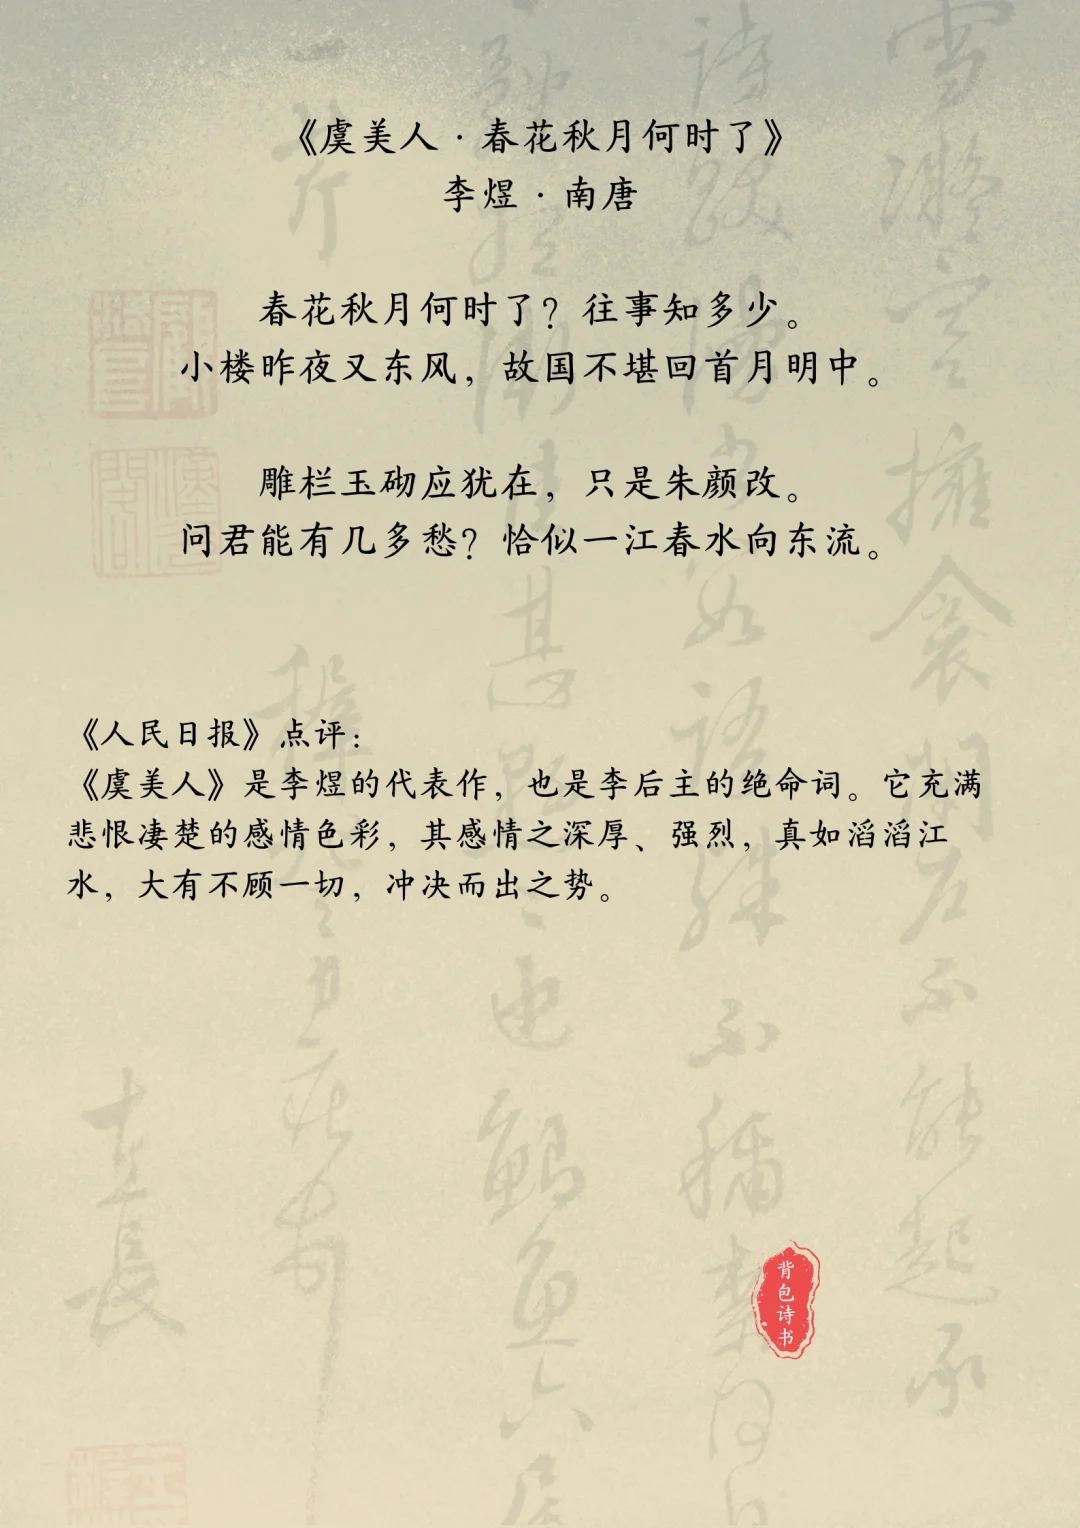 《虞美人·春花秋月何时了》
李煜·南唐
春花秋月何时了？往事知多少。
小楼昨夜又东风，故国不堪回首月明中。
雕栏玉砌应犹在，只是朱颜改。
问君能有几多愁？恰似一江春水向东流。
《人民日报》点评：
《虞美人》是李煜的代表作，也是李后主的绝命词。它充满
悲恨凄楚的感情色彩，其感情之深厚、强烈，真如滔滔江
水，大有不顾一切，冲决而出之势。
背包诗书